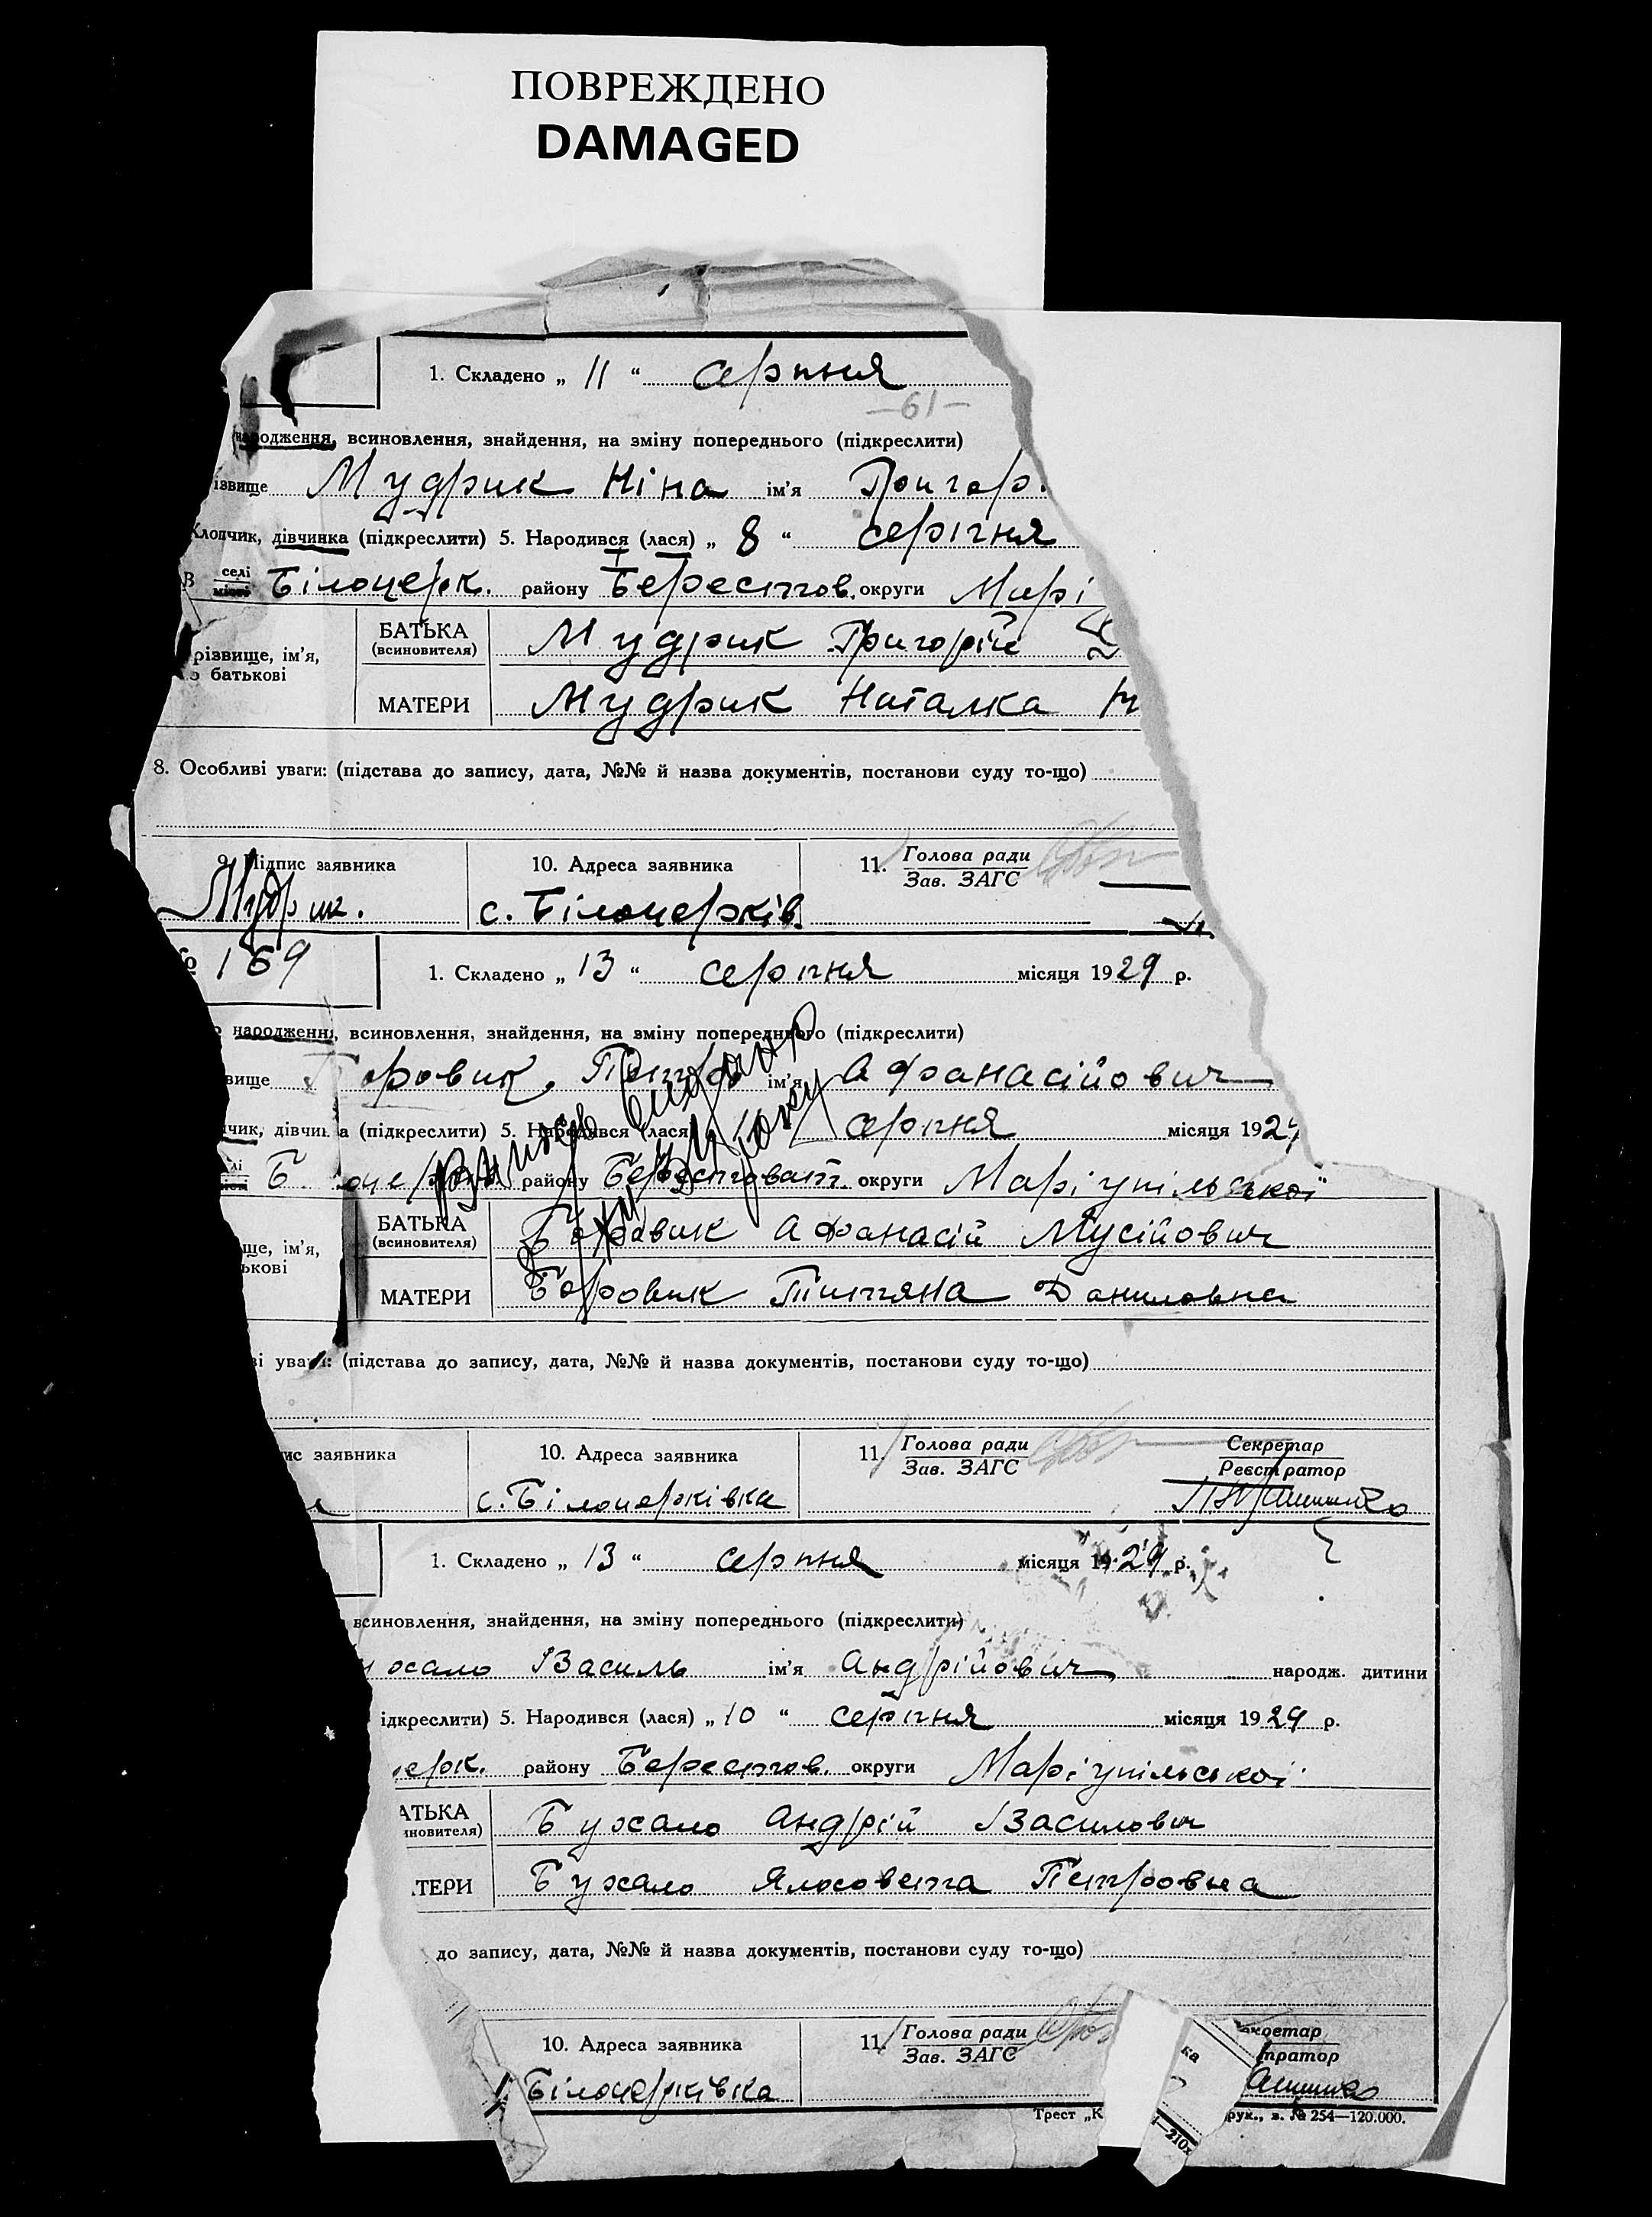 ПОВРЕЖДЕНО
DAMAGED
1. Складено „ 11 “ серпня
—61—
народження, всиновлення, знайдення, на зміну попереднього (підкреслити)
ізвище Мудрик Ніна ім’я Григор.
Хлопчик, дівчинка (підкреслити) 5. Народився (лася) „ 8 “ серпня
В селі місті Білоцерк. району Берестов. округи Марі
різвище, ім’я, БАТЬКА (всиновителя) Мудрик Григорій
батькові
МАТЕРИ Мудрик Наталка
8. Особливі уваги: (підстава до запису, дата, №№ й назва документів, постанови суду то-що)
9. Підпис заявника 10. Адреса заявника 11. Голова ради
Зав. ЗАГС
Мудрик. с. Білоцерків.
№ 169 1. Складено „ 13 “ серпня місяця 1929 р.
народження, всиновлення, знайдення, на зміну попереднього (підкреслити)
вище Боровик Петро ім’я Афанасійович
чик, дівчинка (підкреслити) 5. Народився (лася) серпня місяця 192
Б оцерк. району Берестоват. округи Маріупільської
ще, ім’я, БАТЬКА (всиновителя) Боровик Афанасій Мусійович
ькові
МАТЕРИ Боровик Титяна Даниловна
ві уваги: (підстава до запису, дата, №№ й назва документів, постанови суду то-що)
ис заявника 10. Адреса заявника 11. Голова ради Секретар
Зав. ЗАГС Реєстратор
с. Білоцерківка
1. Складено „ 13 “ серпня місяця 1929 р.
всиновлення, знайдення, на зміну попереднього (підкреслити)
Василь ім’я Андрійович народж. дитини
ідкреслити) 5. Народився (лася) „ 10 “ серпня місяця 1929 р.
ерк. району Берестов. округи Маріупільської
АТЬКА (иновителя) Бухало Андрій Василович
ТЕРИ Бухало Ялисовета Петровна
до запису, дата, №№ й назва документів, постанови суду то-що)
10. Адреса заявника 11. Голова ради екретар
Зав. ЗАГС тратор
Білоцерківка
Трест „К рук., з. № 254—120.000.